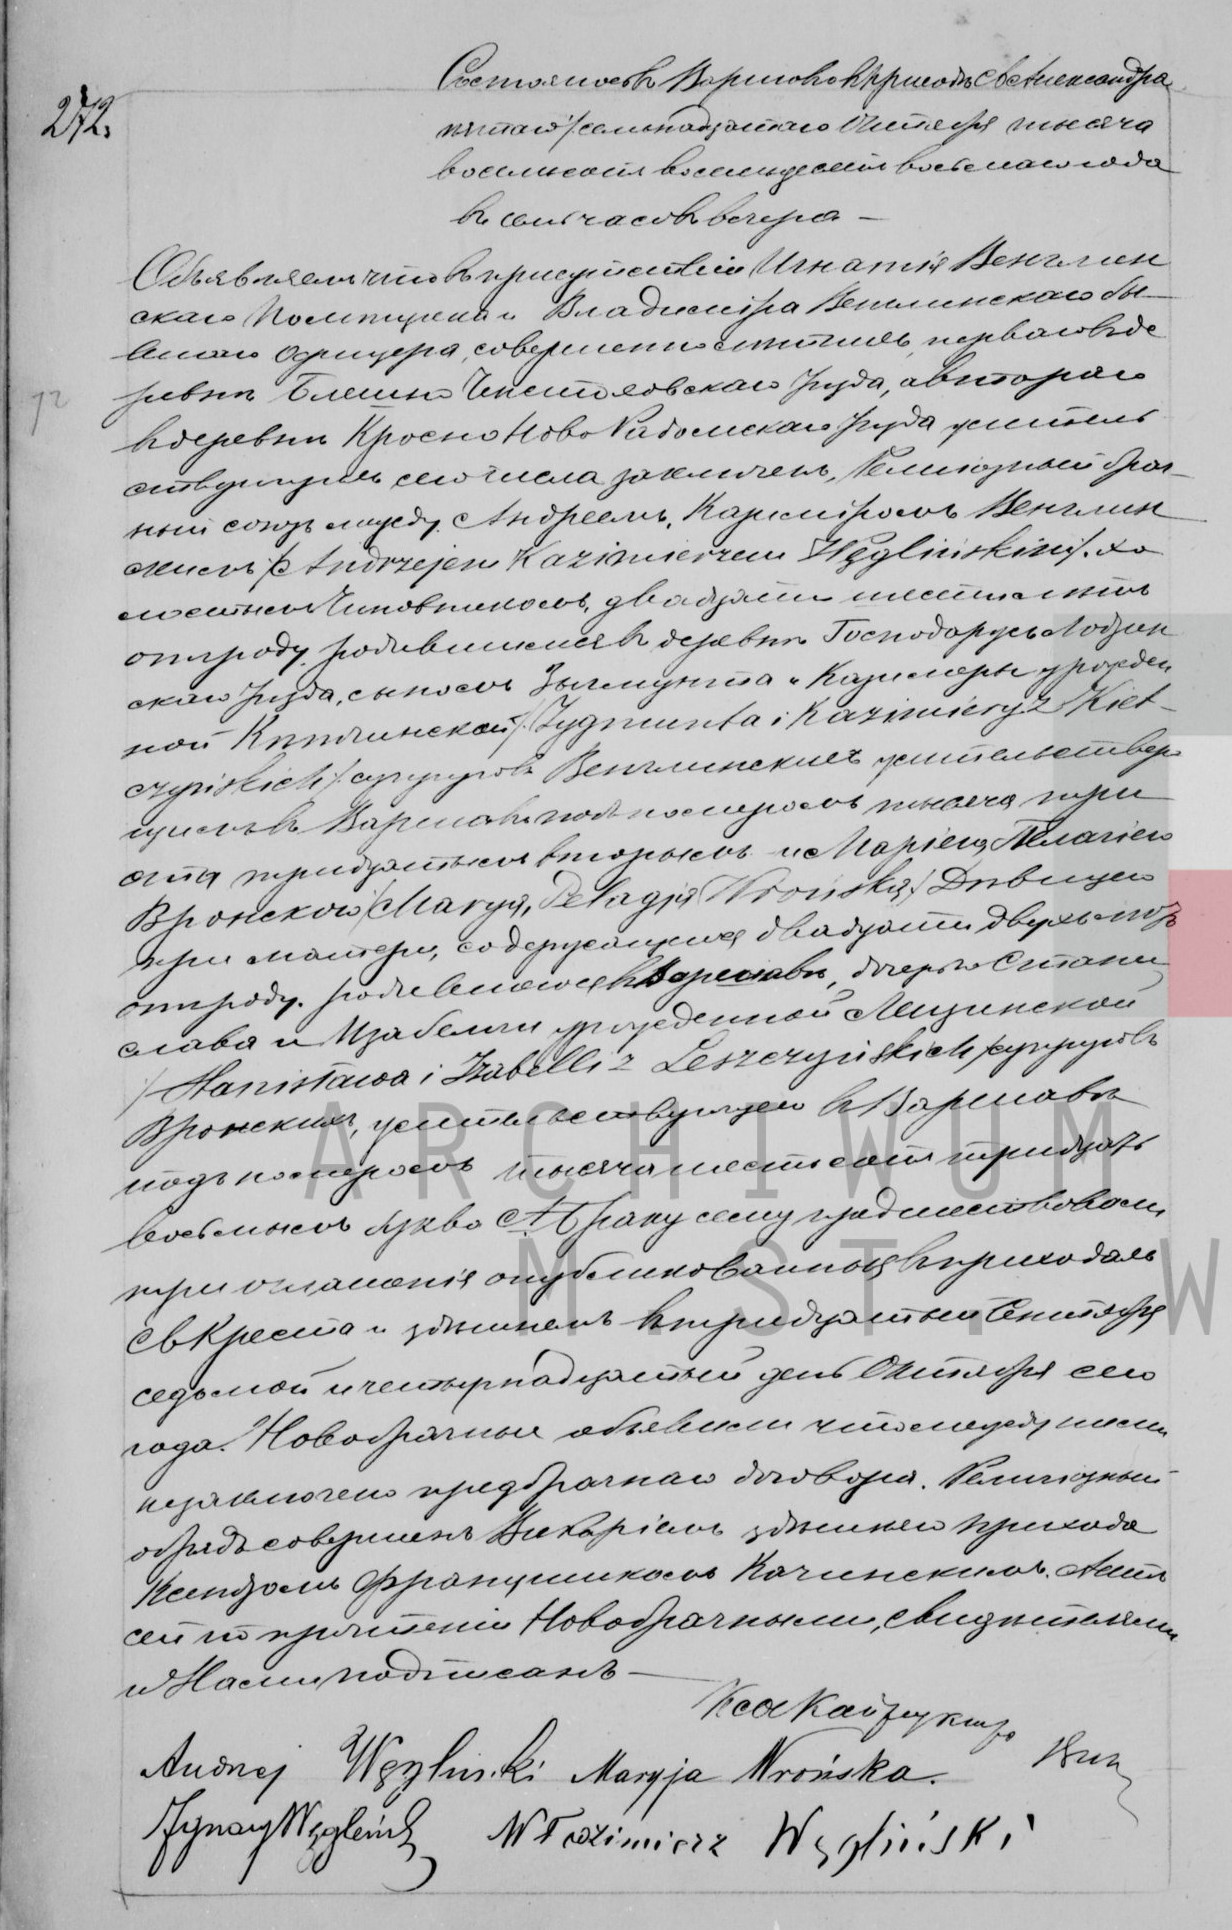 272.
Состоялось въ Варшаве въ приходѣ Св Александра
пятаго/семьнадцатаго Октября тысяча
восемьсотъ восемьдесятъ восьмаго года
въ семь часовъ вечера —
Объявляемъ что въ присутствіи Игнатія Венглин
скаго Помещика и Владиміра Венглинскаго бы
вшаго Офицера, совершеннолѣтнихъ, перваго въ де
ревнѣ Ченстоховскаго уѣзда, а втораго
въ деревнѣ Кросно Ново Радомскаго уѣзда житель
ствующихъ сего числа заключенъ, Религіозный брач-
ный союзъ между Андреемъ, Казиміромъ Венглин
скимъ /Andrzejem Kazimierzem Węglińskim/. хо
лостымъ Чиновникомъ, двадцати шести лѣтъ
отъ роду, родившимся въ деревнѣ Господарусь
скаго уѣзда, сыномъ Зыгмунта и Казимеры урожден
ной Кѣтчинской /Zygmunta i Kazimiery z Kiet-
czyńskich/ супруговъ Венглинскихъ жительствую
щимъ въ Варшавѣ подъ номеромъ тысяча три
ста тридцать вторымъ и Маріею, Пелагіею
Вронскою /Maryą, Pelagją Wrońską/ Дѣвицею
при матери, содержащеюся двадцати двухъ лѣтъ
отъ роду, родившеюся въ Варшавѣ, дочерью Стани
слава и Изабеллы урожденной Лещинской
/Stanisława i Izabelli z Leszczyńskich/ супруговъ
Вронскихъ, жительствующею въ Варшавѣ
подъ номеромъ тысяча шестьсотъ тридцать
восьмымъ буква А. Браку сему предшествовали
три оглашенія опубликованныя въ приходахъ
Св Креста и здѣшнемъ въ тридцатый Сентября
седьмой и четырнадцатый день Октября сего
года. Новобрачные объявили что между ними
незаключено предбрачнаго договора. Религіозный
обрядъ совершенъ Викаріемъ здѣшняго прихода
Ксендзомъ Францишкомъ Качинскимъ. Актъ
сей по прочтеніи Новобрачными, свидѣтелями
и Нами подписанъ —
Andrzej Węgliński Maryja Wrońska.
Ignacy Węgliński W Kazimierz Węgliński
ARCHIWUM
M. ST. W